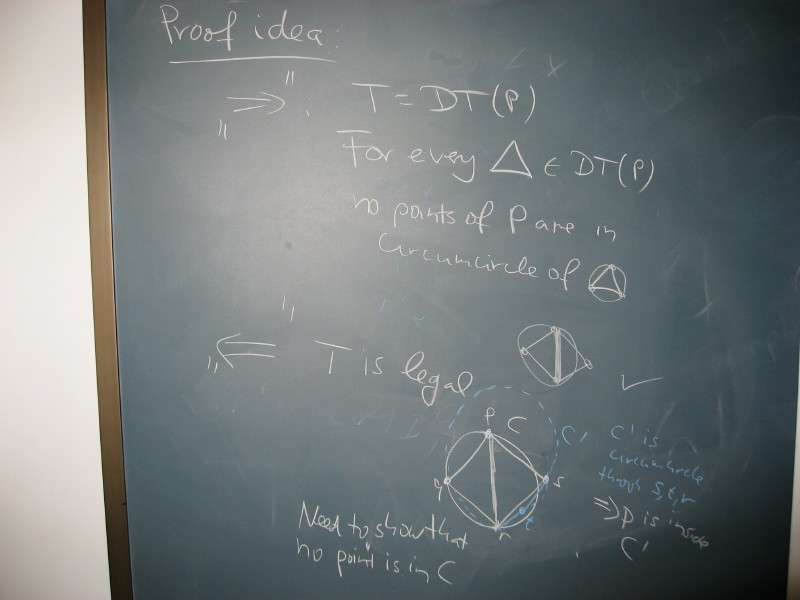 Proof idea:
"⇒": T = DT(P)
For every △ ∈ DT(P)
no points of P are in
circumcircle of
"⇐" T is legal
✓
p C
C'
q s
t
r
C' is
circumcircle
through s,t,r
⇒ p is inside
C'
Need to show that
no point is in C